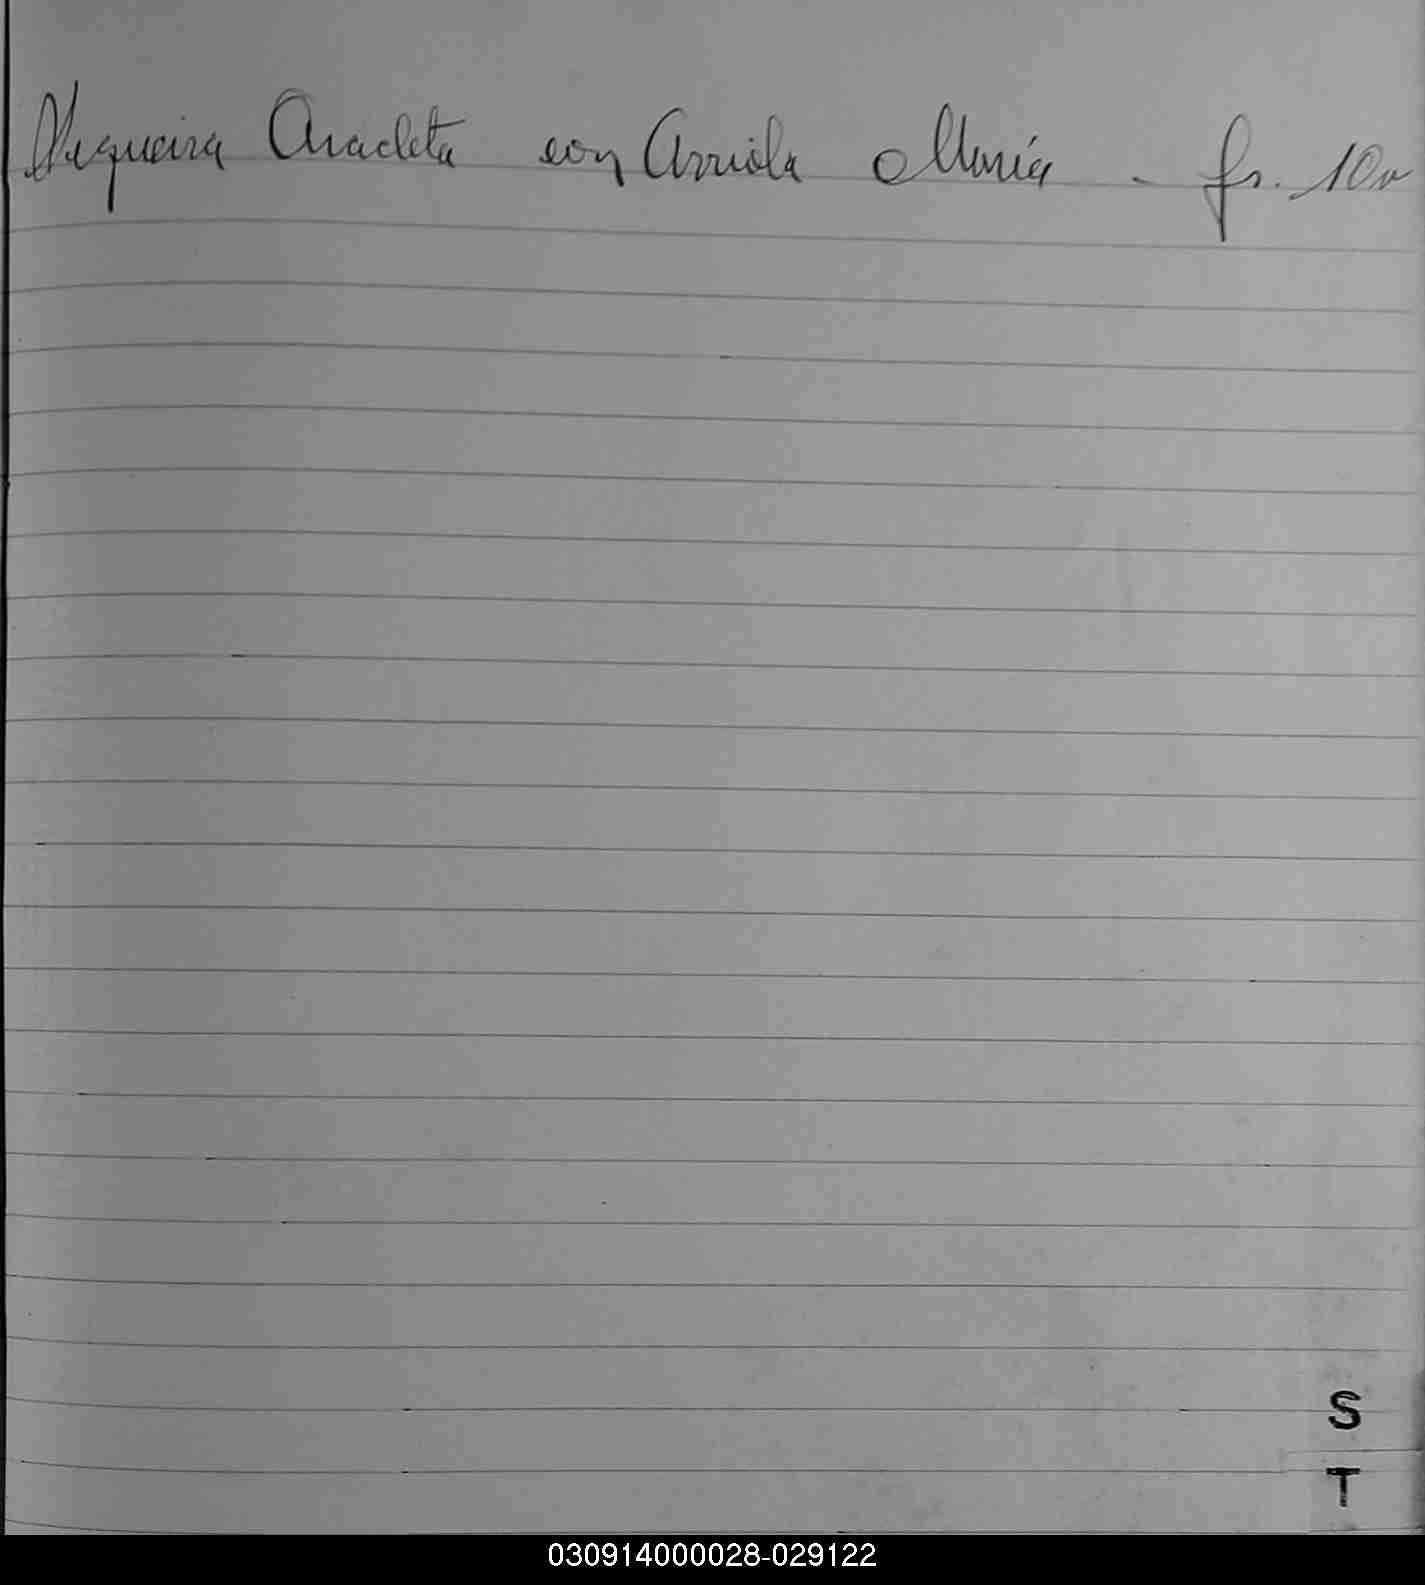 Nequeira Anacleta con Arriola María - fs. 10v
S
T
030914000028-029122